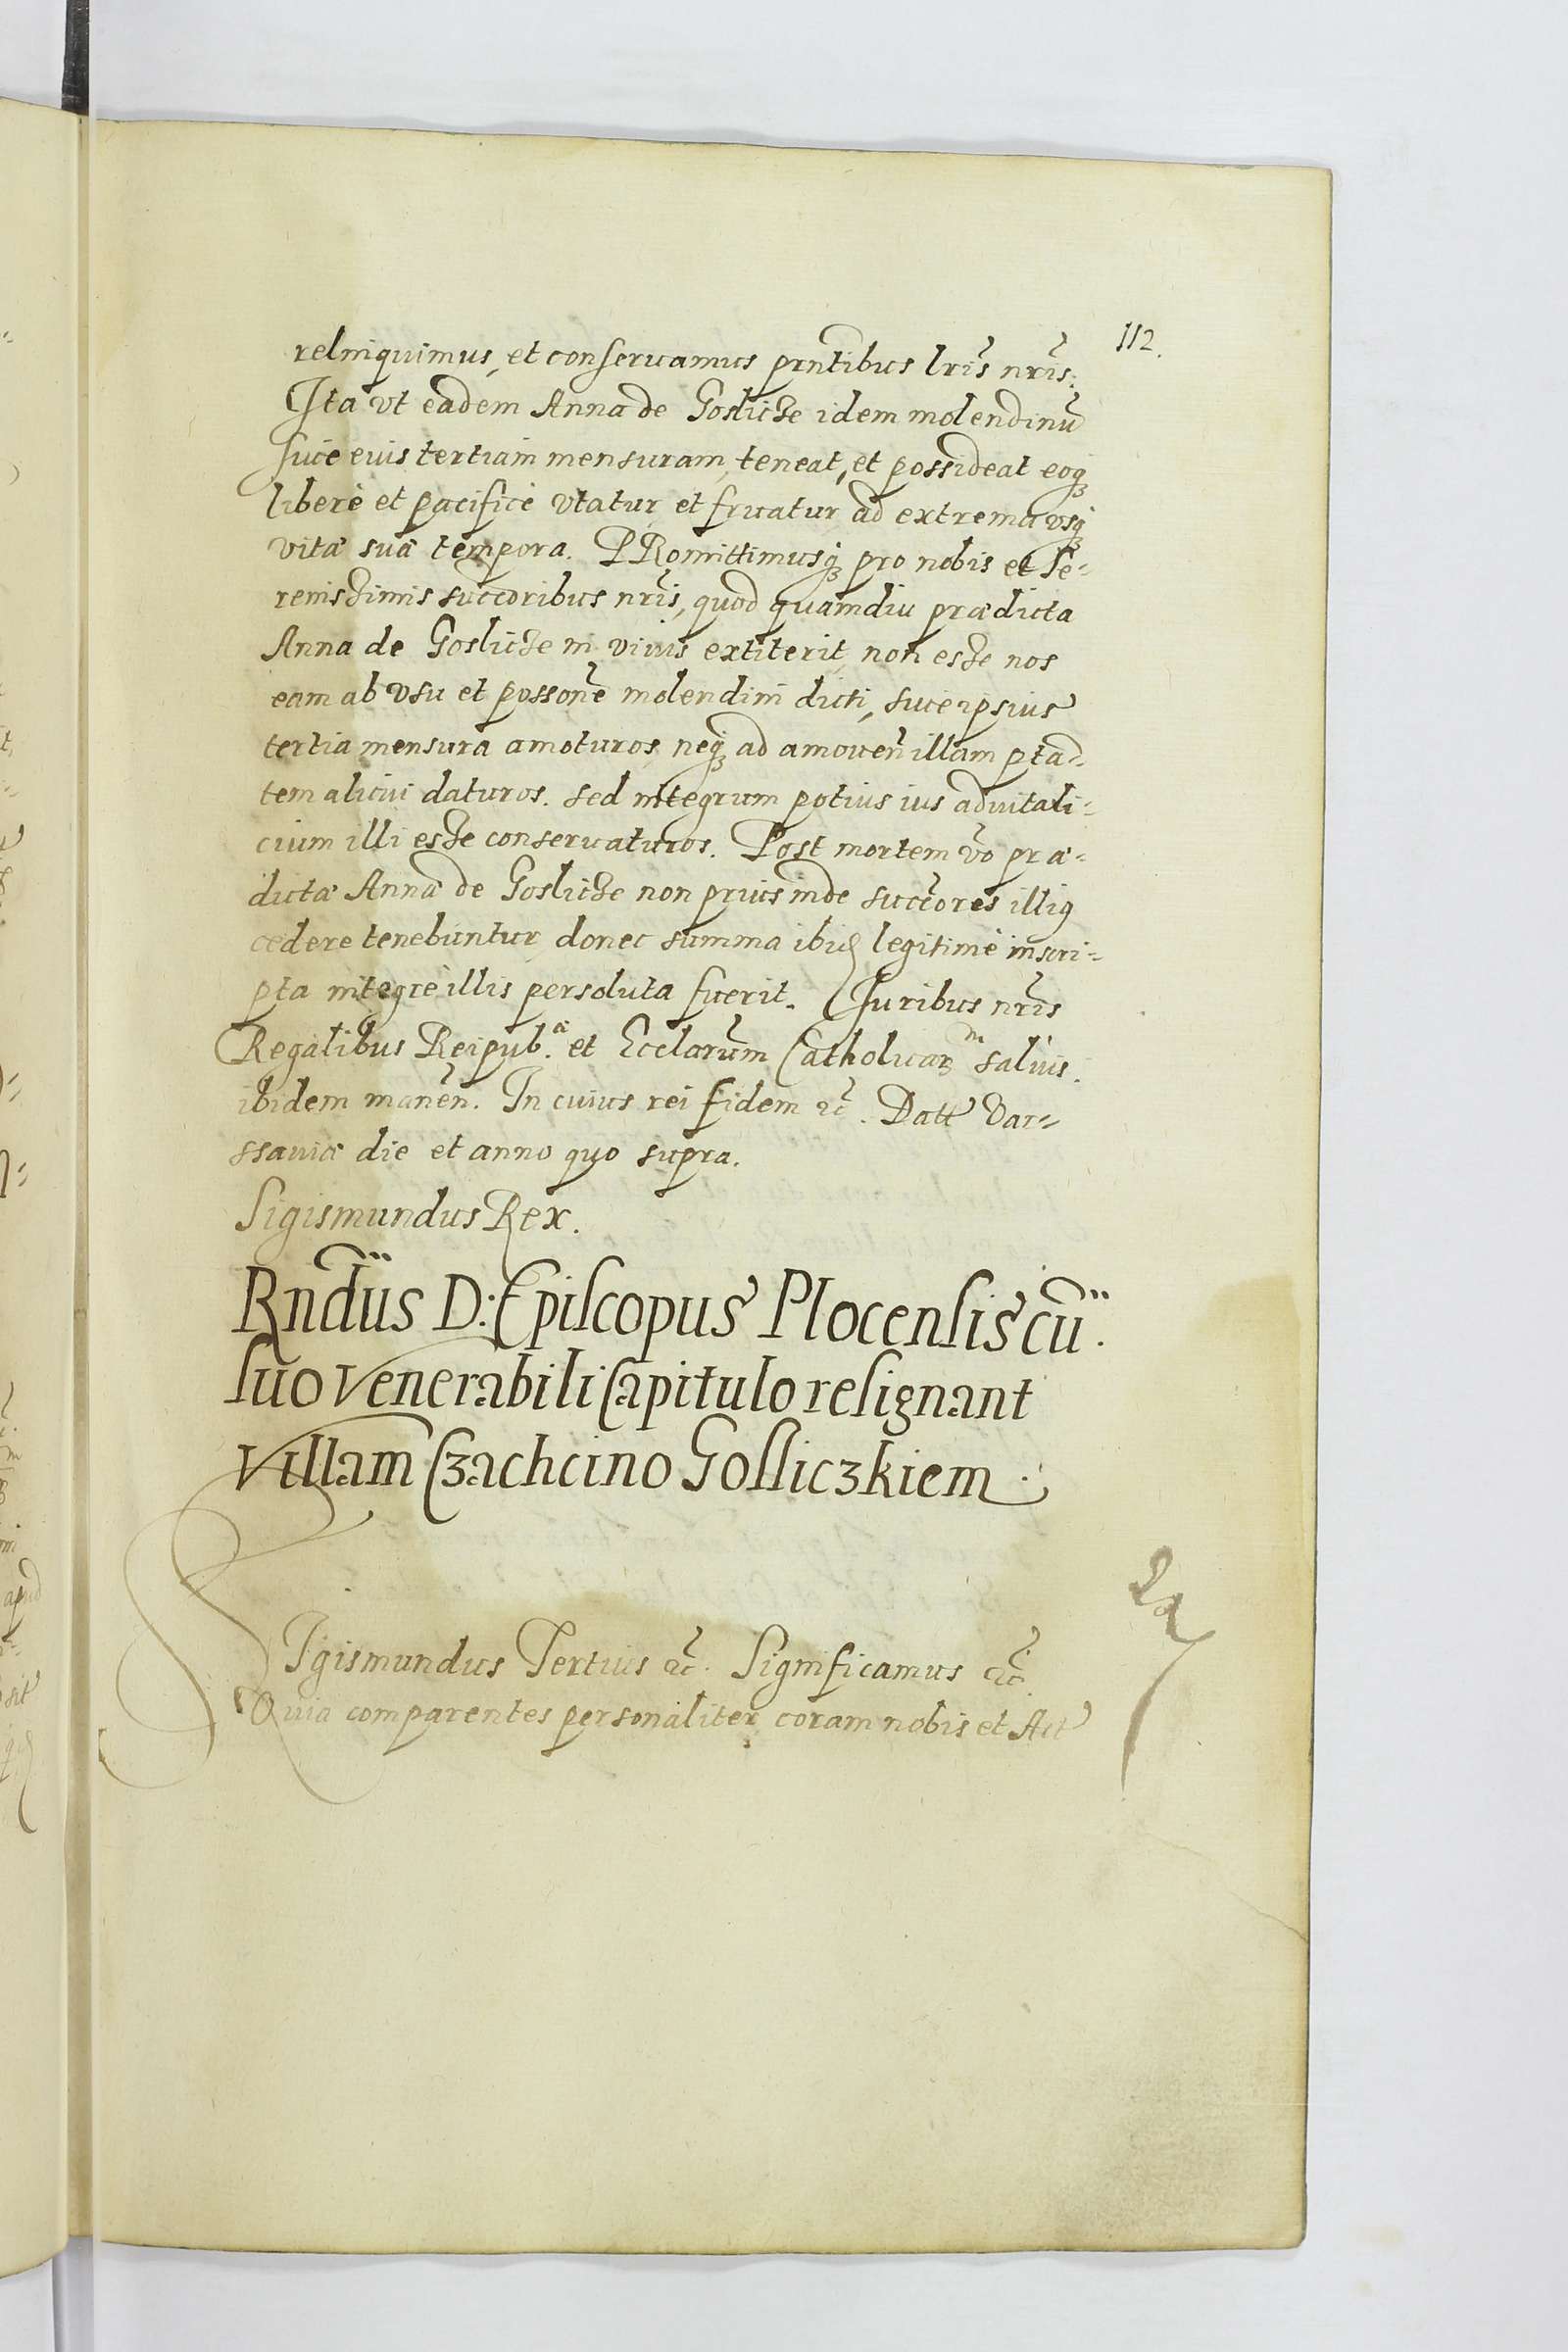 112.
relinquimus, et conseruamus prntibus lris nris.
Ita vt eadem Anna de Goslicze idem molendinũ
siue eius tertiam mensuram, teneat, et possideat eoqȝ
liberè et pacificè vtatur et fruatur ad extrema vsqȝ
vitæ suæ tempora. PRomittimusqȝ pro nobis et Se-
renissimis succoribus nris, quod quamdiu prædicta
Anna de Goslicze in viuis extiterit, non esse nos
eam ab vsu et possone molendini dicti, siue ipsius
tertia mensura amoturos, neqȝ ad amouen illam ptad-
tem alicui daturos. sed integrum potius ius aduitali-
cium illi esse conseruaturos. Post mortem vo præ-
dictæ Annæ de Goslicze non prius inde succores illiꝰ
cedere tenebuntur, donec summa ibid legitimè inscri-
pta integrè illis persoluta fuerit. Iuribus nris
Regalibus Reipub.æ et Ecclarum Catholicar̃m saluis.
ibidem manen. In cuius rei fidem &c. Datt Var-
ssauiæ die et anno quo supra.
Sigismundus Rex.
Rndus D: Episcopus Plocensis cũ
suo Venerabili Capitulo resignant
Villam Czachcino Gosliczkiem.
SIgismundus Tertius &c. Significamus &c.
Quia comparentes personaliter coram nobis et Act